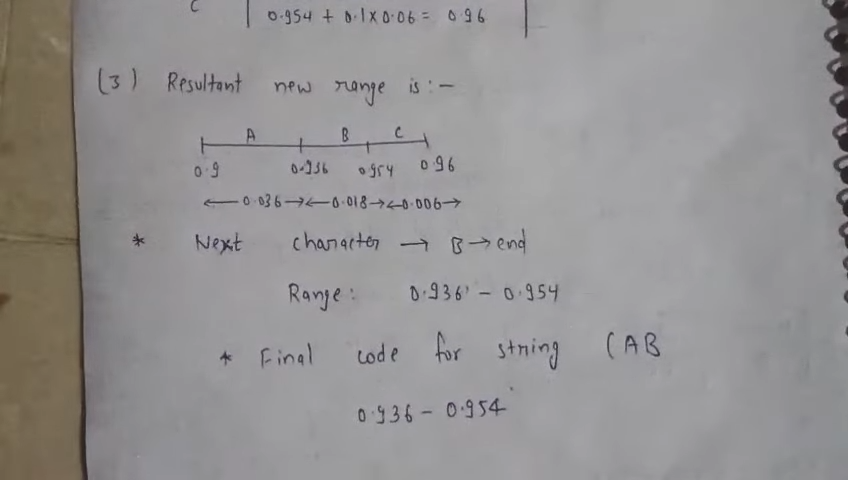 C 0.954 + 0.1 x 0.06 = 0.96
(3) Resultant new range is :-
A B C
0.9 0.936 0.954 0.96
← 0.036 →← 0.018 →← 0.006 →
* Next character → B → end
Range: 0.936 - 0.954
* Final code for string (AB
0.936 - 0.954